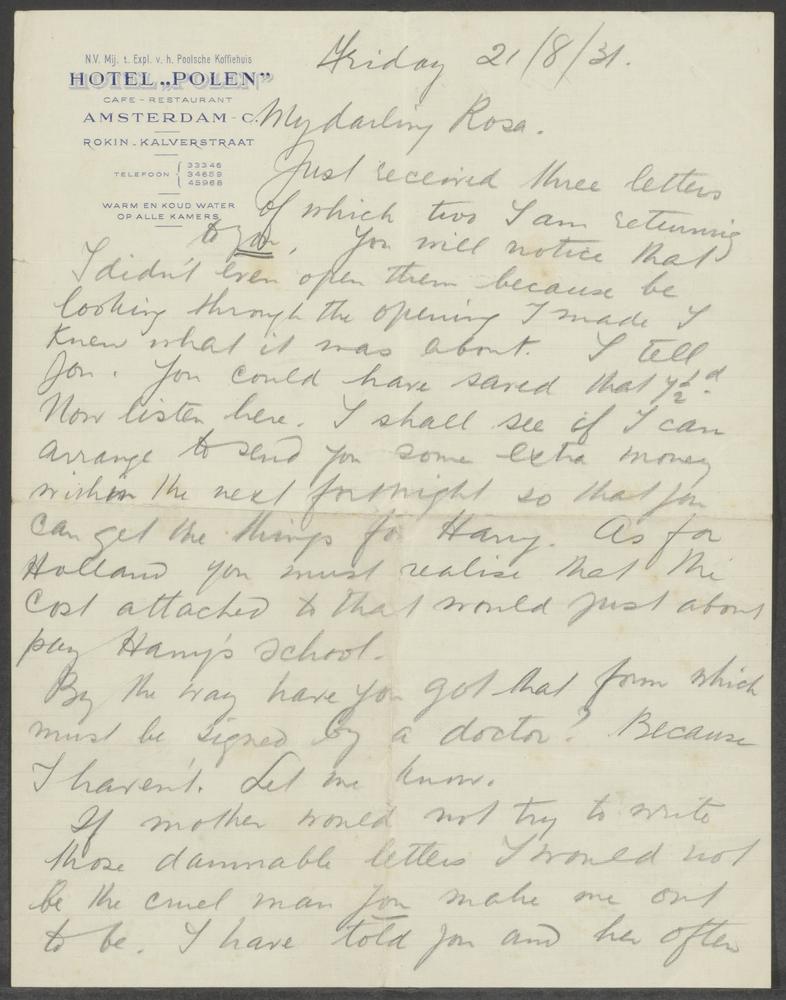 N.V. Mij. t. Expl. v. h. Poolsche Koffiehuis
HOTEL „POLEN”
CAFE - RESTAURANT
AMSTERDAM - C.
ROKIN - KALVERSTRAAT
TELEFOON { 33346
34659
45968
WARM EN KOUD WATER
OP ALLE KAMERS
Friday 21/8/31.
My darling Rosa.
Just received three letters
of which two I am returning
to you, You will notice that
I didn't even open them because be
looking through the opening I made I
knew what it was about. I tell
you. You could have saved that 4½d.
Now listen here. I shall see if I can
arrange to send you some extra money
within the next fortnight so that you
can get the things for Harry. As for
Holland you must realise that the
cost attached to that would just about
pay Harry's school.
By the way have you got that form which
must be signed by a doctor? Because
I haven't. Let me know.
If mother would not try to write
those damnable letters I would not
be the cruel man you make me out
to be. I have told you and her often